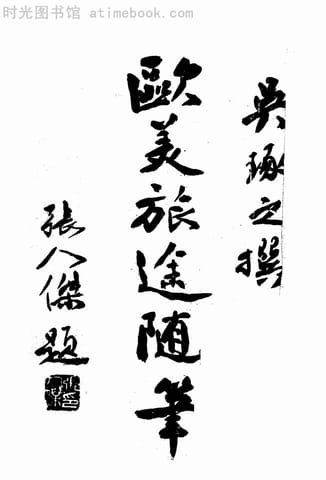 时光图书馆 - atimebook.com
吳琢之撰
歐美旅途随筆
張人傑題